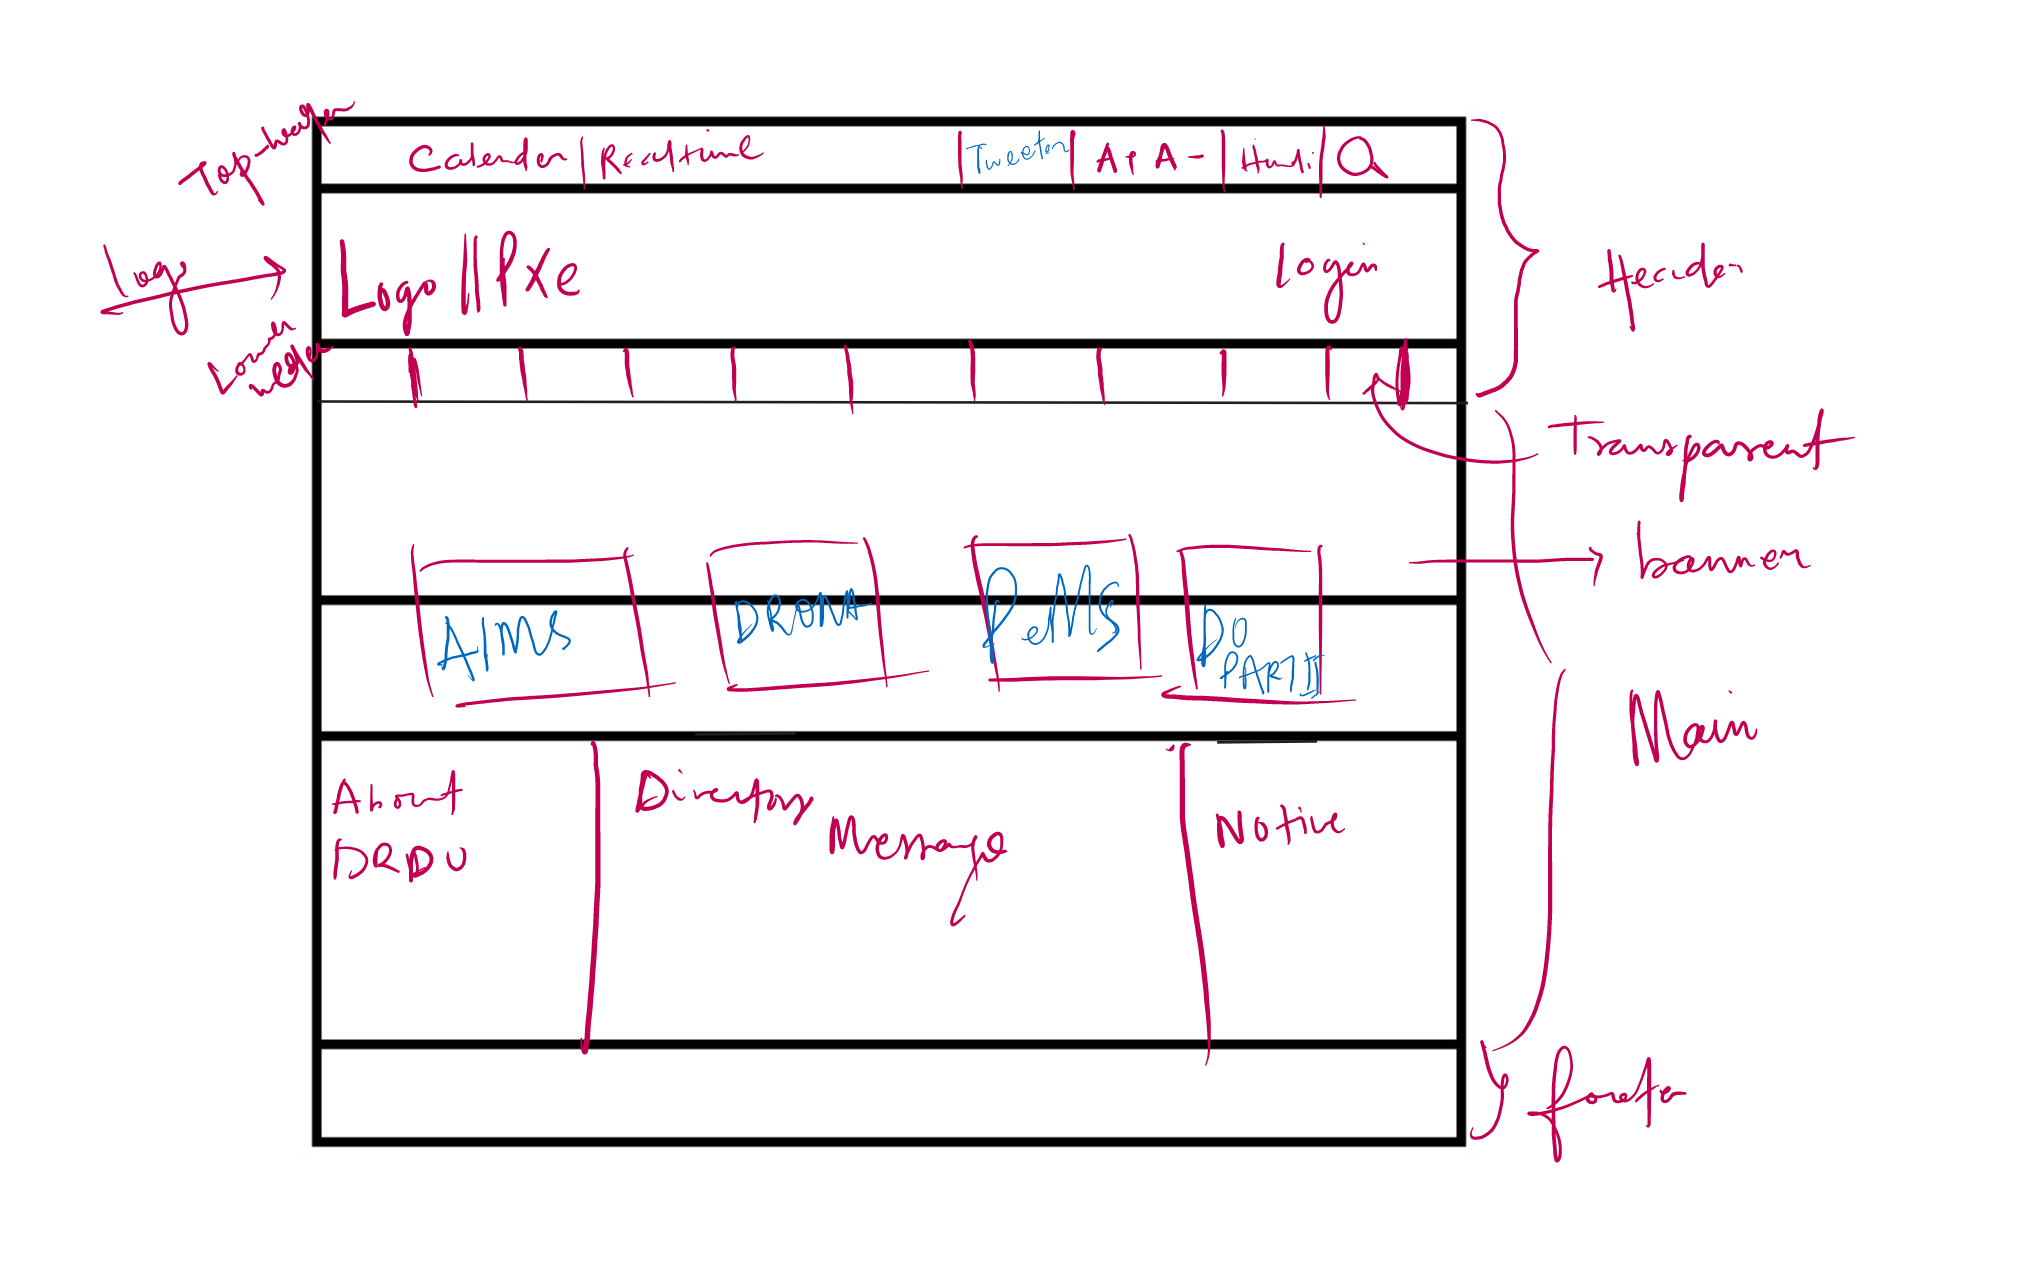 Top-header
Calender | Realtime | Tweeter | A+ A- | Hindi | Q
Logo
Logo || PXe
Login
Header
Lower header
Transparent
banner
AIMS
DRONA
PeMS
DO
PART II
Main
About
DRDO
Directory
Message
Notice
footer